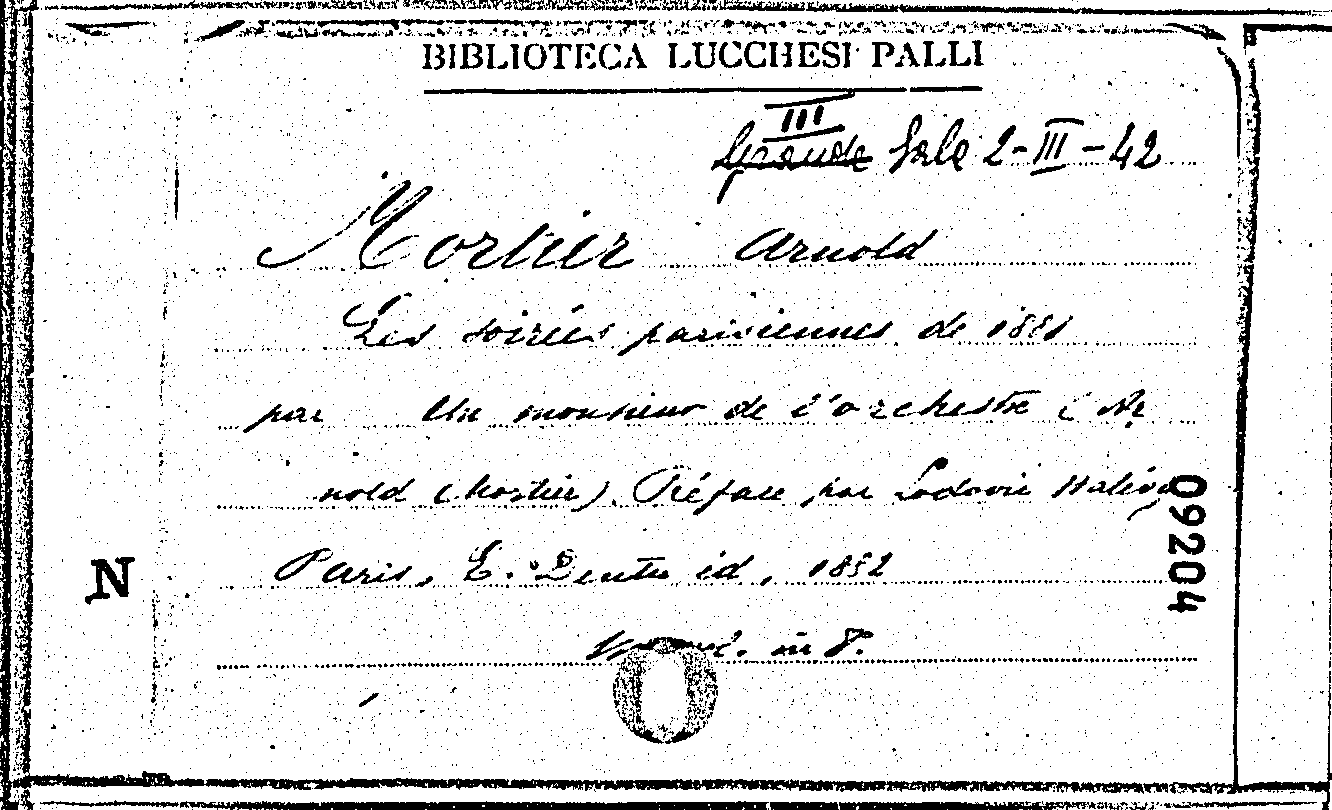 BIBLIOTECA LUCCHESI PALLI
III
Grande Sala 2-III-42
Mortier Arnold
Les soirées parisiennes de 1881
par Un monsieur de l'orchestre (Ar
nold Mortier). Préface par Ludovic Halévy
Paris, E. Dentu ed, 1882
in 8.
N
09204